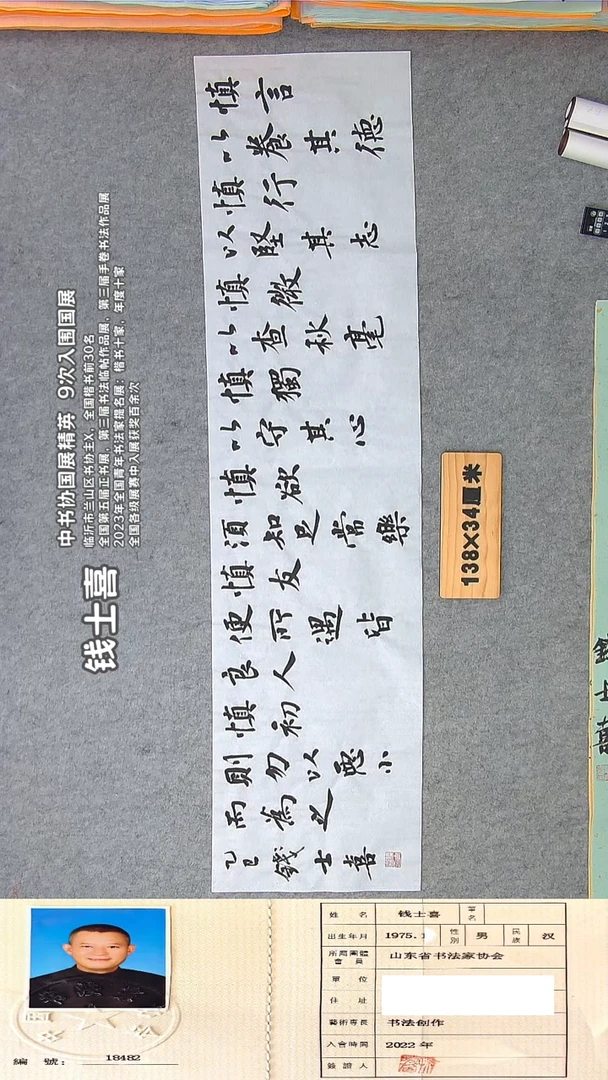 钱士喜
中书协国展精英 9次入围国展
临沂市兰山区书协主X，全国楷书前30名
全国第五届正书展，第三届书法临帖作品展，第三届手卷书法作品展
2023年全国青年书法家提名展；楷书十家，年度十家
全国各级展赛中入展获奖百余次
慎言
以養其德
慎行
以堅其志
慎微
以查秋毫
慎獨
以守其心
慎欲
須知足常樂
慎友
便所遇皆
良人
慎初
則勿以惡小
而為之
乙巳錢士喜
138×34厘米
錢士喜
編號：18482
姓名 钱士喜 署名
出生年月 1975.1 性別 男 民族 汉
所屬團體會員 山东省书法家协会
單位
住址
藝術專長 书法创作
入會時間 2022年
簽證人